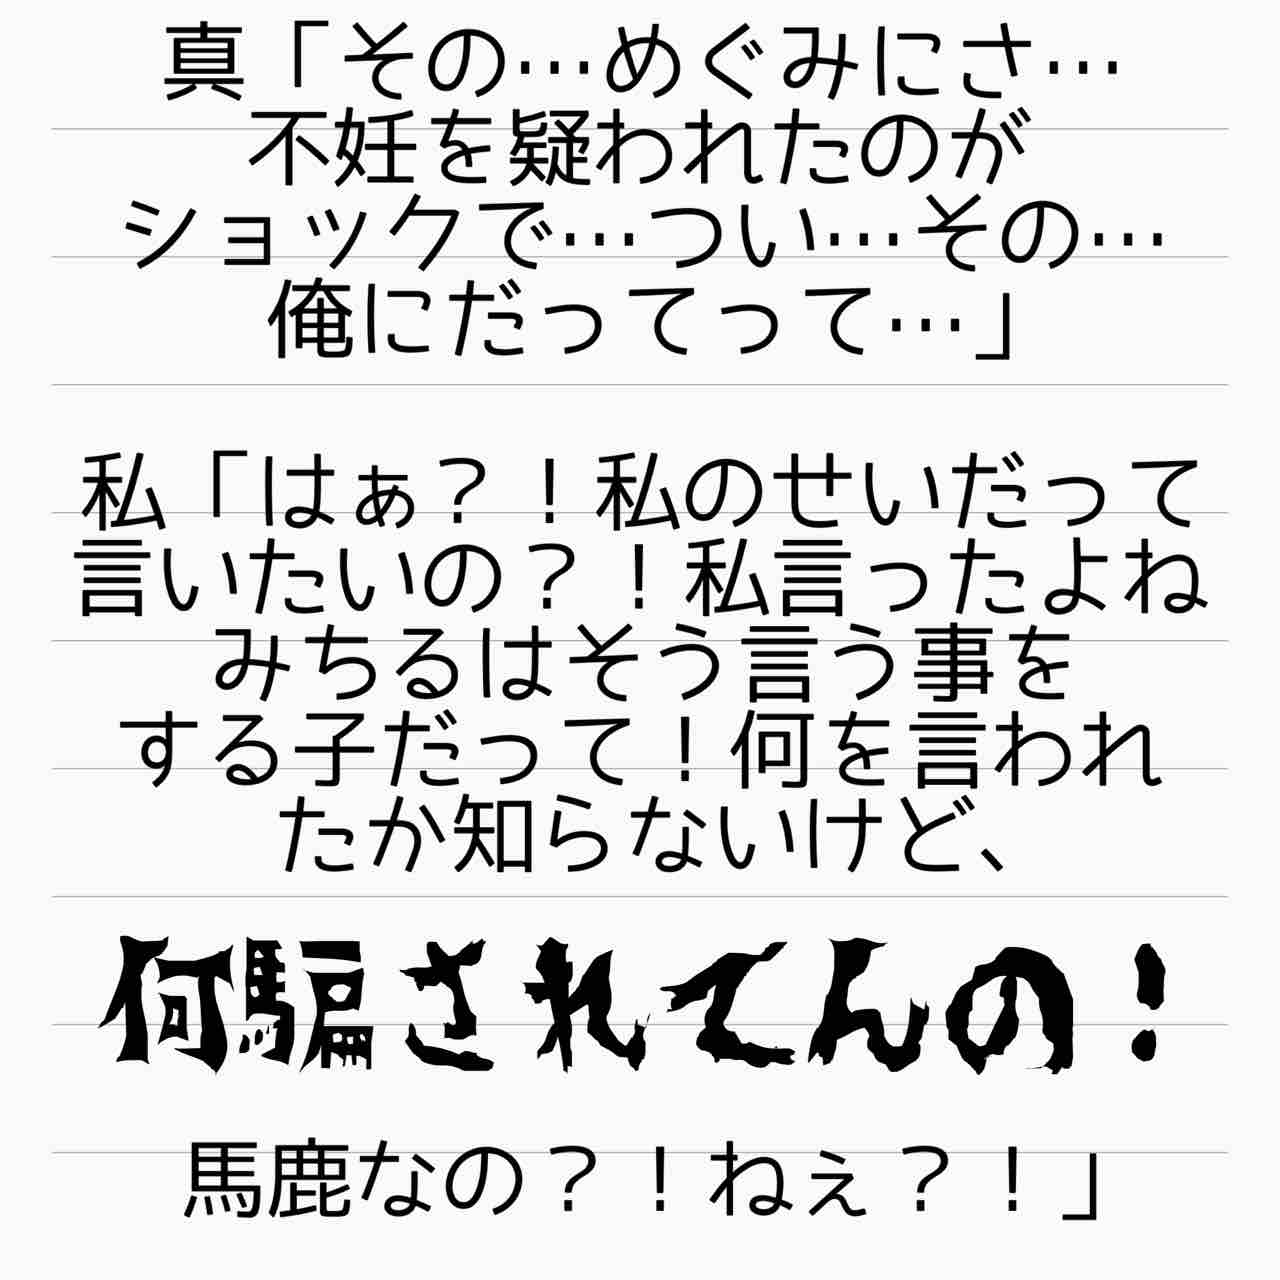 真「その…めぐみにさ…
不妊を疑われたのが
ショックで…つい…その…
俺にだってって…」
私「はぁ？！私のせいだって
言いたいの？！私言ったよね
みちるはそう言う事を
する子だって！何を言われ
たか知らないけど、
何騙されてんの！
馬鹿なの？！ねぇ？！」